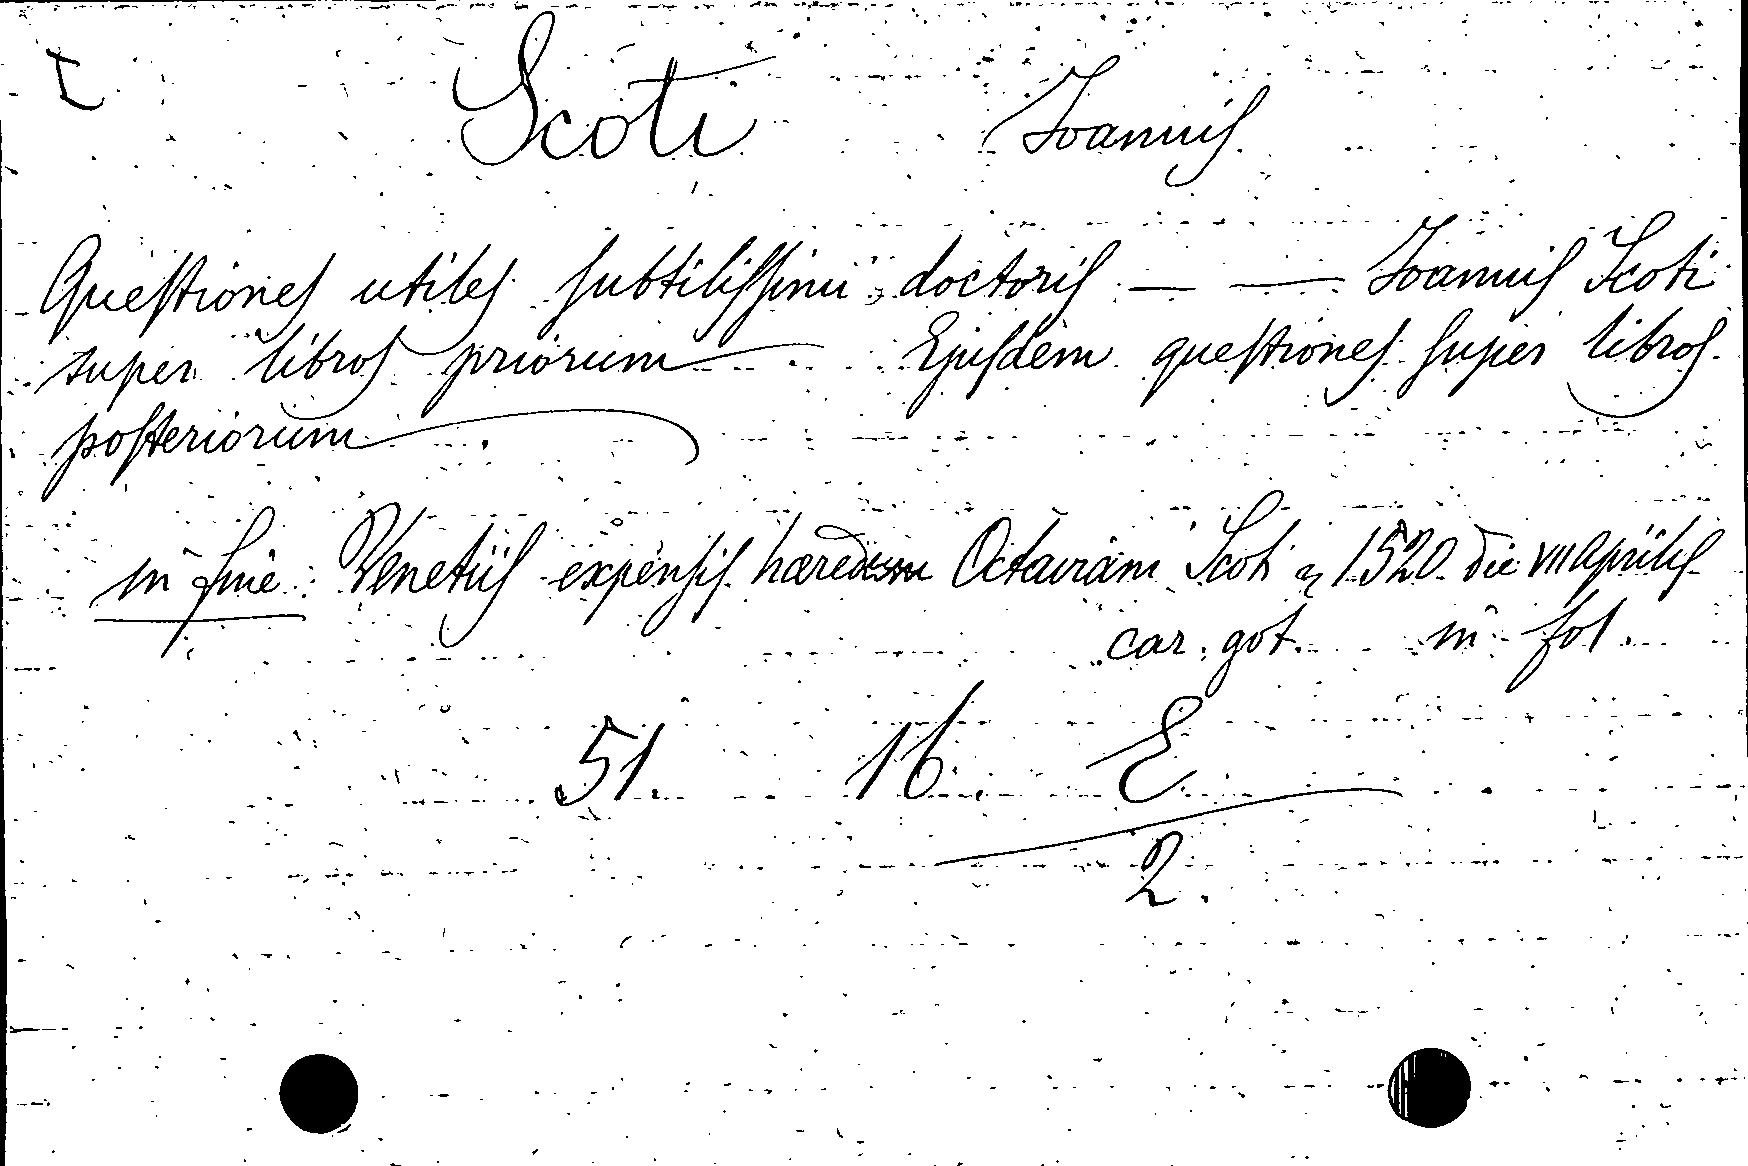 I Scoti Joannis
Questiones utiles subtilissimi doctoris — — Joannis Scoti
super libros priorum — Ejusdem questiones super libros
posteriorum
in fine: Venetiis expensis hæredum Octaviani Scoti 1520 die VII aprilis
car. got. in fol.
51. 16. E
2.